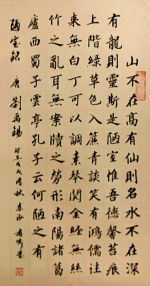 山不在高有仙則名水不在深
有龍則靈斯是陋室惟吾德馨苔痕
上階綠草色入簾青談笑有鴻儒往
來無白丁可以調素琴閱金經無絲
竹之亂耳無案牘之勞形南陽諸葛
廬西蜀子雲亭孔子云何陋之有
陋室銘 唐 劉禹錫